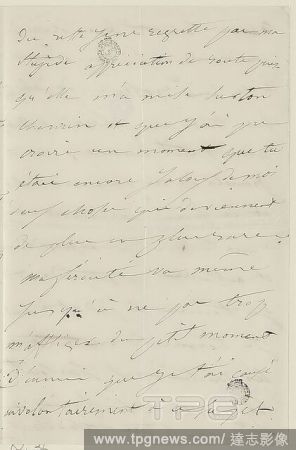 Du reste je ne regrette pas ma
stupide appréciation de
qu'elle m'a mise sur ton
chemin et que j'ai pu
croire un moment que tu
étais encore jaloux de moi
chose qui deviennent
de plus en plus rare
va même
jusqu'à ne pas trop
m'affliger du petit moment
d'ennui que je t'ai causé
involontairement à ce sujet
TPG
www.tpgnews.com / 達志影像